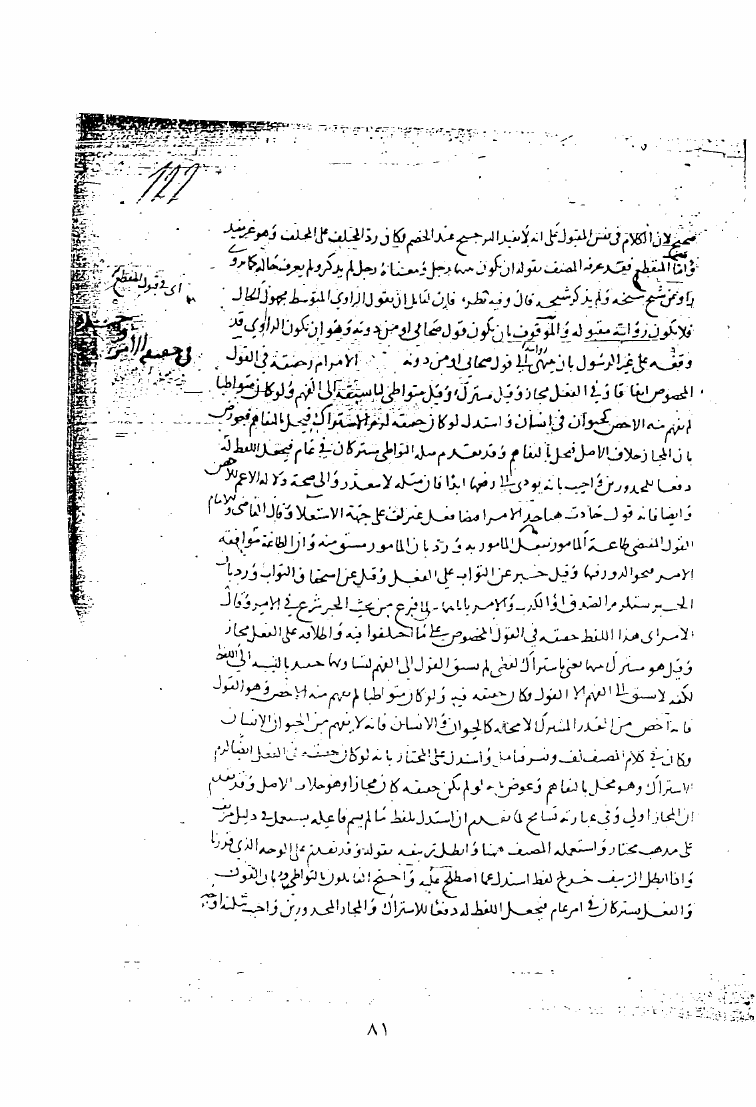 ١٢٢
صحيح لان الكلام في نفس المقول على انه لا يفيد الترجيح عند الخصم لكان رد المختلف على المختلف وهو غير مفيد
واما المنقطع فقد عرفه المصنف بقوله ان يكون بينهما رجل ومعناه رجل لم يذكر ولم يعرف حاله
اي في قول المنقطع
شيخ شيخه ولم يذكر شيخه قال وفيه نظر فان لقائل ان يقول الراوي المتوسط مجهول الحال
فلا يكون روايته مقبولة والموقوف بان يكون قول صحابي او من دونه وهو ان يكون الراوي قد
وقفه على غير الرسول بان ينتهي الى قول صحابي او من دونه الامر ام ر حقيقة في القول
المخصوص اتفاقا وفي الفعل مجاز وقيل مشترك وقيل متواطئ لنا سبقه الى الفهم ولو كان متواطيا
لم يفهم منه الاخص كحيوان في انسان واستدل لو كان حقيقة لزم الاشتراك فيخل بالتفاهم فعورض
بان المجاز خلاف الاصل فيخل بالتفاهم وقد تقدم مثله التواطئ مشتركان في عام فيجعل اللفظ له
دفعا للمحذورين واجيب بانه يؤدي الى رفعهما ابدا فان مثله لا يتعذر والى صحة دلالة الاعم للاخص
وايضا فانه قول حادث هنا حد الامر اقتضاء فعل غير كف على جهة الاستعلاء وقال القاضي والامام
القول المقتضي طاعة المأمور بفعل المأمور به ورد بان المأمور مشتق منه وان الطاعة موافقة
الامر فيجيء الدور فيهما وقيل خبر عن الثواب على الفعل وقيل عن استحقاق الثواب ورد بان
الخبر يستلزم الصدق او الكذب والامر ياباهما لما فرغ من بحث الخبر شرع في الامر وقال
الامر اي هذا اللفظ حقيقة في القول المخصوص على ما اختلفوا فيه واطلاقه على الفعل مجاز
وقيل هو مشترك بينهما يعني باشتراك لفظي لم يسبق القول الى الفهم لتساويهما حينئذ بالنسبة الى اللفظ
لكنه لا يسبق الى الفهم الا القول وكان حقيقة فيه ولو كان متواطيا لم يفهم منه الاخص وهو القول
فانه اخص من القدر المشترك لا محالة كالحيوان والانسان فانه لا يفهم من الحيوان الانسان
وكان في كلام المصنف لف ونشر واستدل على المختار بانه لو كان حقيقة في الفعل ايضا لزم
الاشتراك وهو مخل بالتفاهم وعورض بانه لو لم يكن حقيقة كان مجازا وهو خلاف الاصل وقد تقدم
ان المجاز اولى وفي عبارته تسامح لما تقدم ان استدل بلفظ ما لم يسم فاعله يستعمل في دليل مزيف
على مذهب مختار واستعمله المصنف ههنا وابطل تزييفه بقوله وقد تقدم على الوجه الذي قررنا
واذا ابطل التزييف خرج لفظ استدل عما اصطلح عليه واحتج القايلون بالتواطئ بان القول
والفعل مشتركان في امر عام فيجعل اللفظ له دفعا للاشتراك والمجاز المحذورين واجيب بثلاثة اوجه
٨١